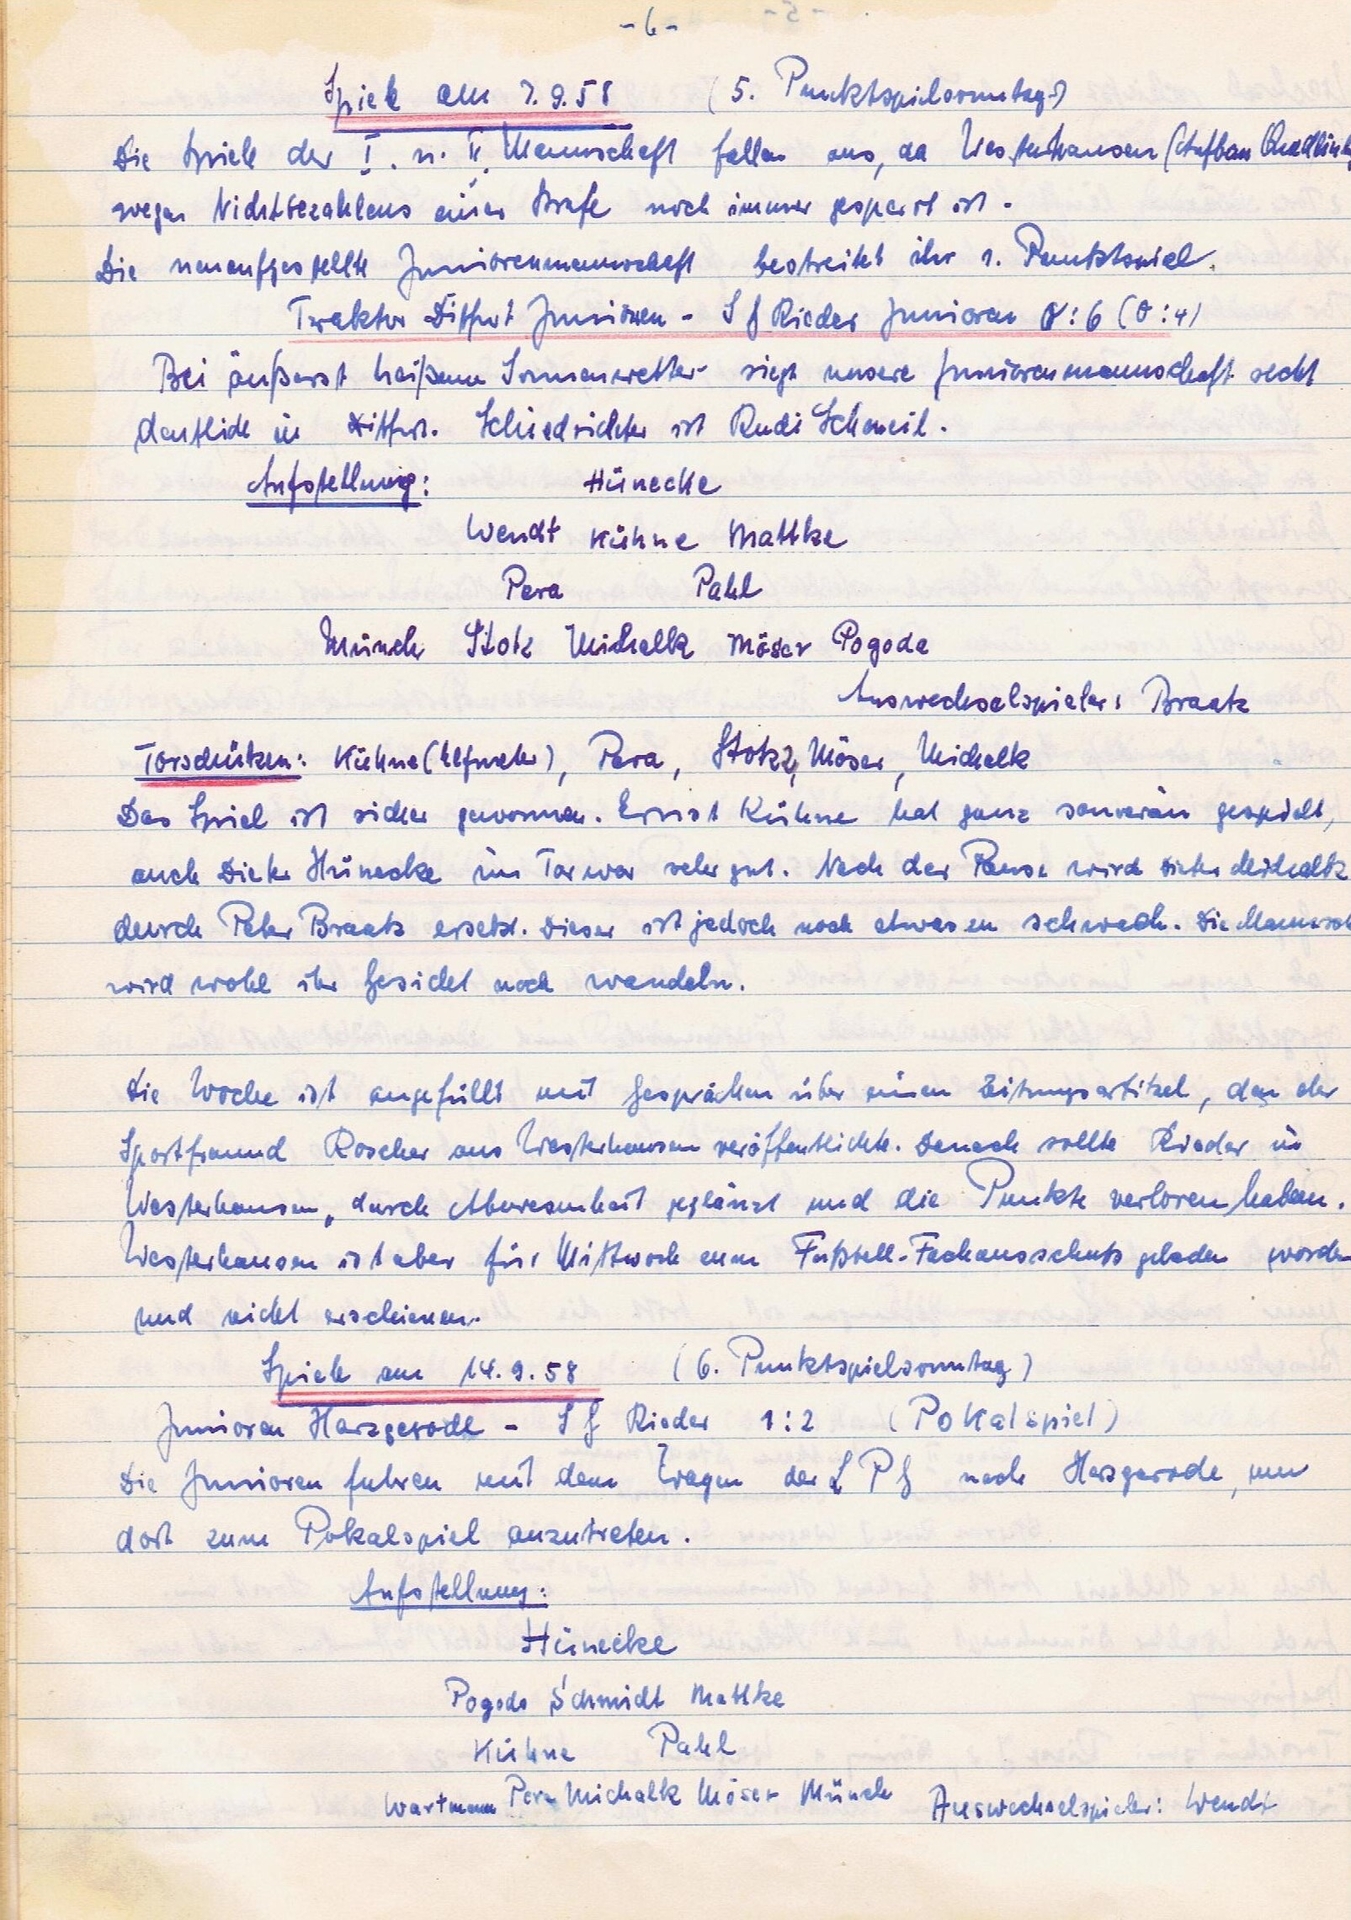 -6-
Spiele am 7.9.58 (5. Punktspielsonntag)
Die Spiele der I. u. II. Mannschaft fallen aus, da Westerhausen (Aufbau Quedlinbg
wegen Nichtbezahlens einer Strafe noch immer gesperrt ist.
Die neuaufgestellte Juniorenmannschaft bestreitet ihr 1. Punktspiel.
Traktor Ditfurt Junioren - SG Rieder Junioren 0:6 (0:4)
Bei äußerst heißem Sonnenwetter siegt unsere Juniorenmannschaft recht
deutlich in Ditfurt. Schiedsrichter ist Rudi Schweil.
Aufstellung: Hünecke
Wendt Kühne Mattke
Pera Pahl
Münch Stotz Michalk Möser Pogoda
Auswechselspieler: Braatz
Torschützen: Kühne (Elfmeter), Pera, Stotz 2, Möser, Michalk
Das Spiel ist sicher gewonnen. Ernst Kühne hat ganz souverän gespielt,
auch Dieter Hünecke im Tor war sehr gut. Nach der Pause wird Dieter Michalk
durch Peter Braatz ersetzt. Dieser ist jedoch noch etwas zu schwach. Die Mannsch
wird wohl ihr Gesicht noch wandeln.
Die Woche ist angefüllt mit Gesprächen über einen Zeitungsartikel, den der
Sportfreund Roscher aus Westerhausen veröffentlichte. Danach sollte Rieder in
Westerhausen „durch Abwesenheit geglänzt und die Punkte verloren haben.
Westerhausen ist aber für Mittwoch zum Fußball-Fachausschuß geladen worden
und nicht erschienen.
Spiele am 14.9.58 (6. Punktspielsonntag)
Junioren Harzgerode - SG Rieder 1:2 (Pokalspiel)
Die Junioren fuhren mit dem Wagen der LPG nach Harzgerode, um
dort zum Pokalspiel anzutreten.
Aufstellung:
Hünecke
Pogoda Schmidt Mattke
Kühne Pahl
Wartmann Pera Michalk Möser Münch Auswechselspieler: Wendt